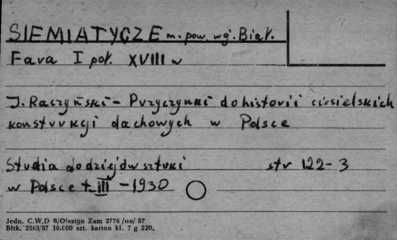 SIEMIATYCZE m. pow. wg. Biał.
Fara I poł. XVIII w
J. Raczyński - Przyczynki do historii ciesielskich
konstrukcji dachowych w Polsce
Studia do dziejów sztuki str 122-3
w Polsce t. III - 1930
Jedn. C.W.D 8/Olsztyn Zam 2776/on/57
Bltk. 2563/57 10.000 szt. karton kl. 7 g 220,